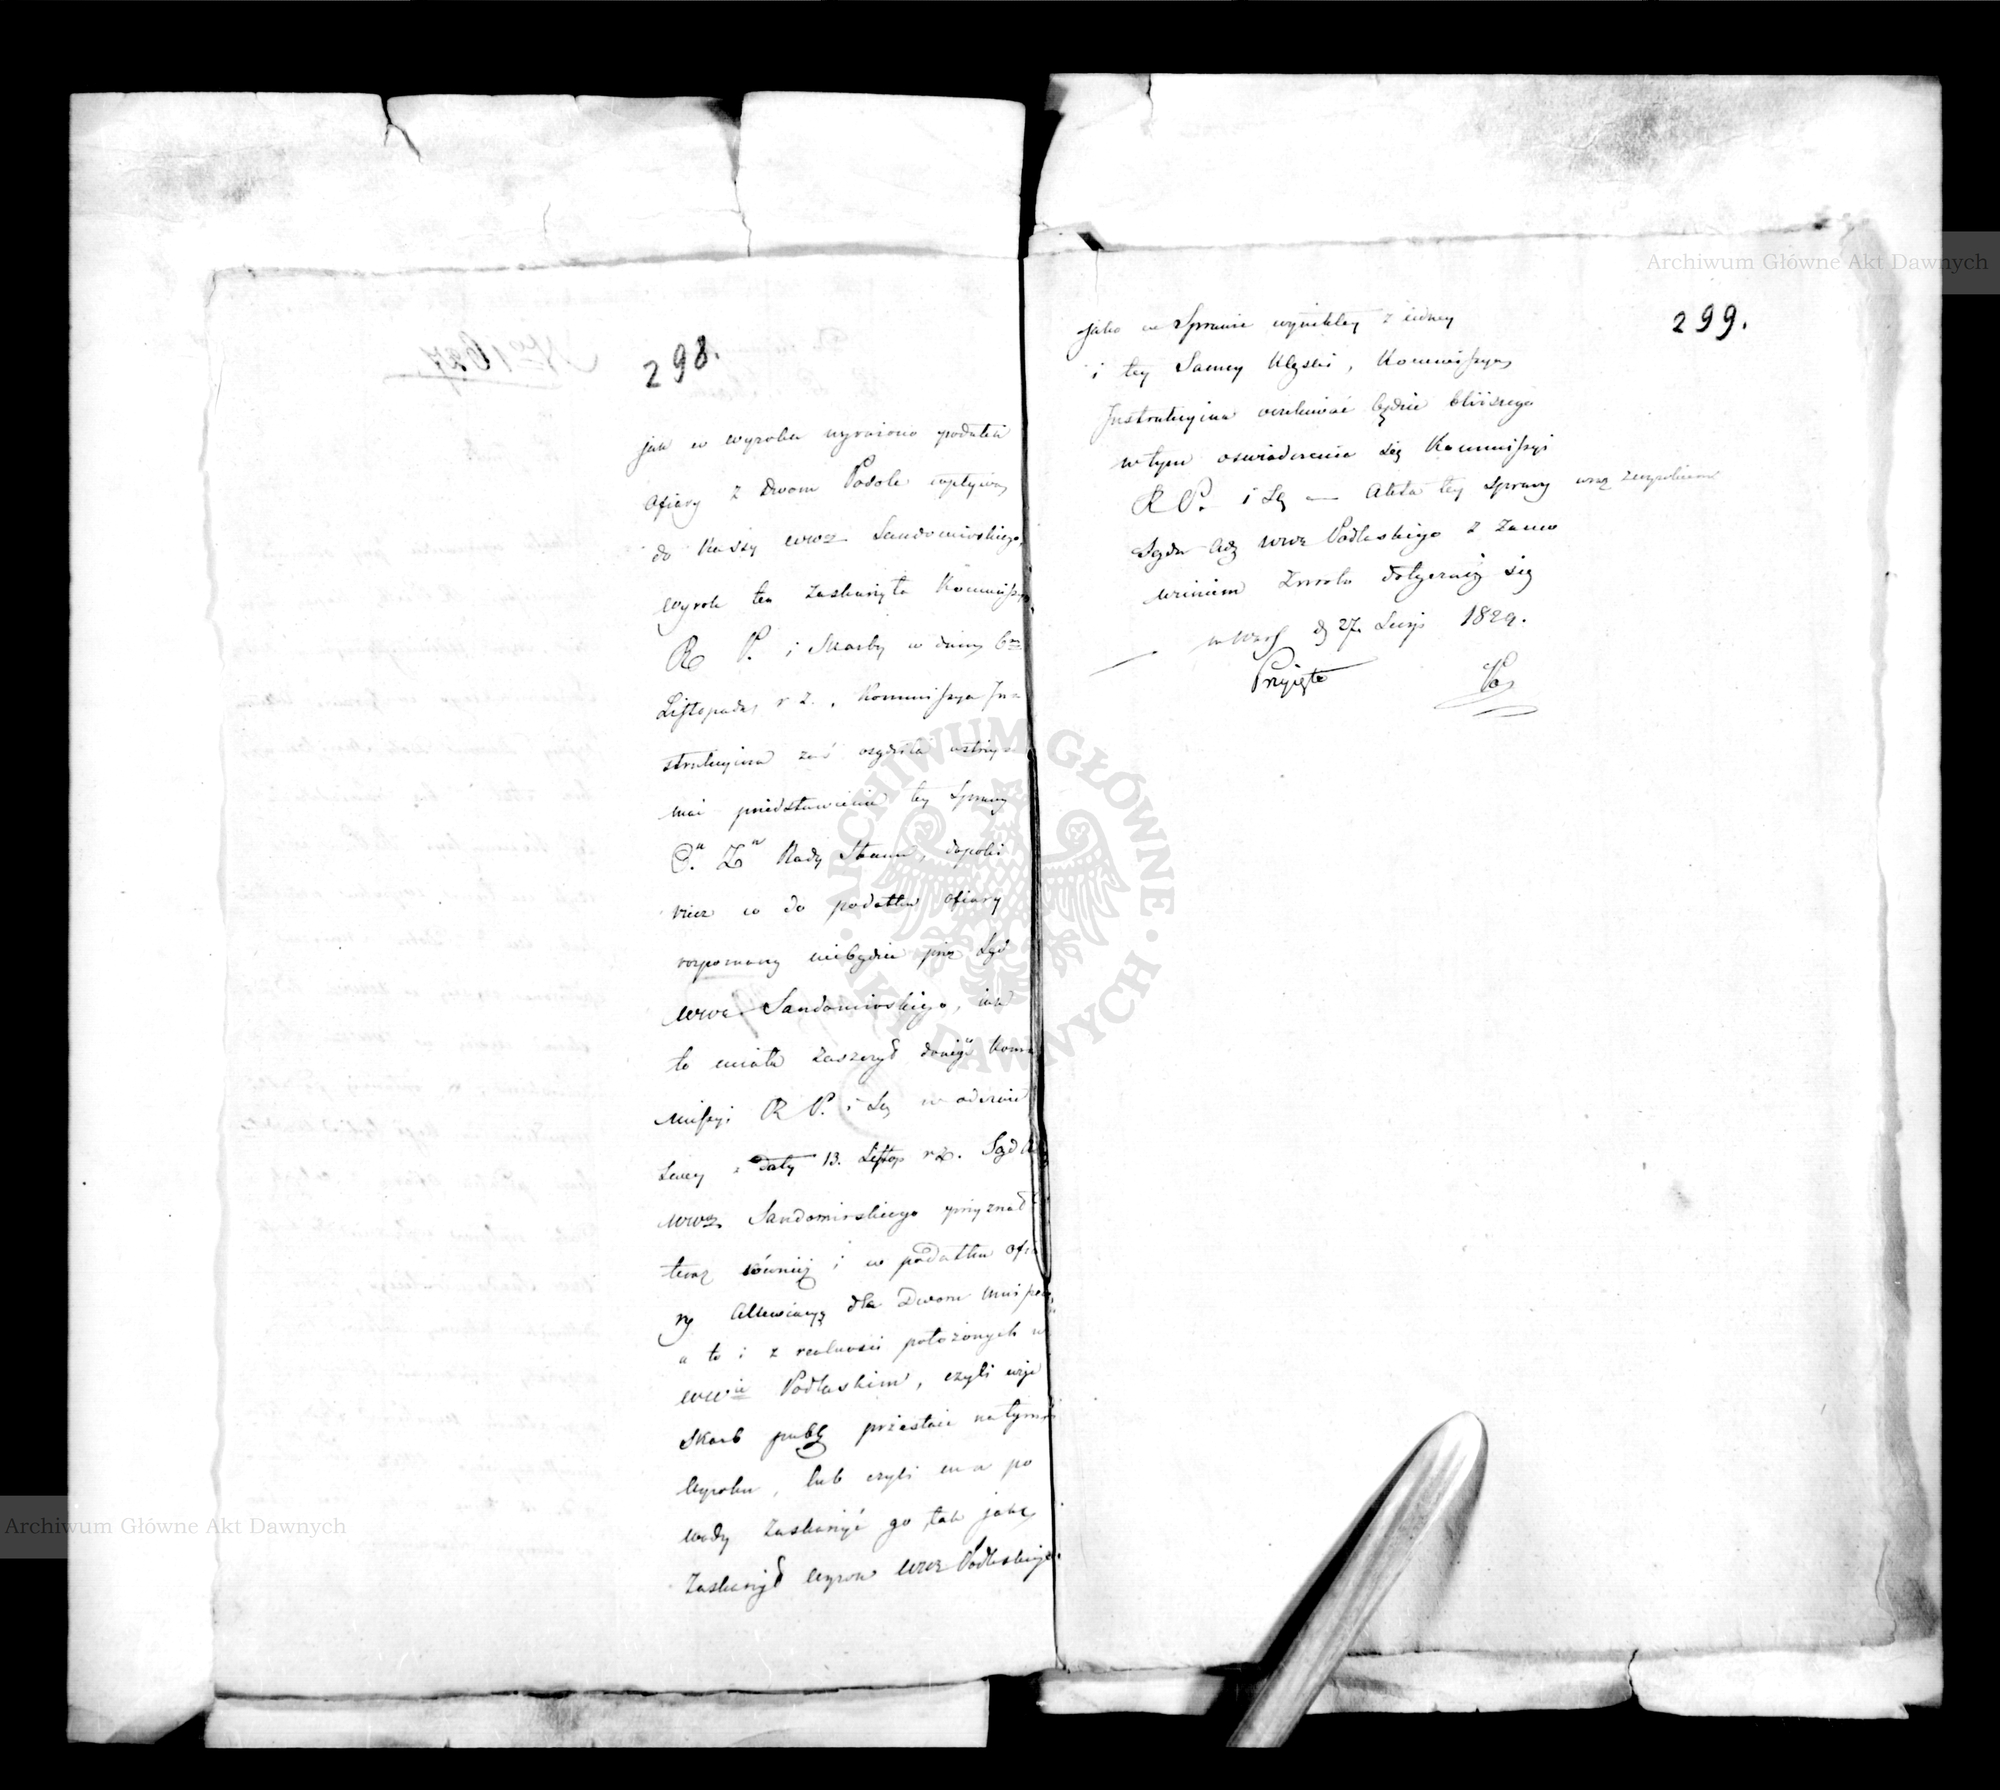 298.
jak w wyroku wyrażono podatek
ofiary z dwom Podole wpływa
do Kassy wwa Sandomirskiego,
wyrok ten zaskarżyła Kommissya
R P. i Skarbu w dniu 6
Listopada r z., Kommissya In
strukcyina zaś osądziła wstrzy
mać przedstawienie tey sprawy
Rady Stanu, dopóki
rzecz co do podatku ofiary
rozpoznany niebędzie przez Sąd
wwa Sandomirskiego, jak
to miała zaszczyt donieść Kom
missyi R P. i S w odezwie
swey z daty 13. Listop r z. Sąd
wwa Sandomirskiego przyznał
teraz również i w podatku ofia
ry allewiacyą dla Dworu
a to i z realności położonych w
wwie Podlaskim, czyli więc
Skarb publ przestaie na tym
wyroku, lub czyli ma po
wody zaskarżyć go tak jak
zaskarżył wyrok wwa Podlaskiego.
299.
jako w sprawie wynikłey z iedney
i tey samey klęski, Kommissya
Instrukcyina oczekiwać będzie bliższego
w tym oświadczenia się Kommissyi
R P. i S — Akta tey sprawy wraz z wyrokiem
Sądu Adm wwa Podlaskiego z zamó
wieniem zwrotu dołączaią się
w Warsz d 27. 1829.
Przyięto
Archiwum Główne Akt Dawnych
Archiwum Główne Akt Dawnych
ARCHIWUM GŁÓWNE AKT DAWNYCH